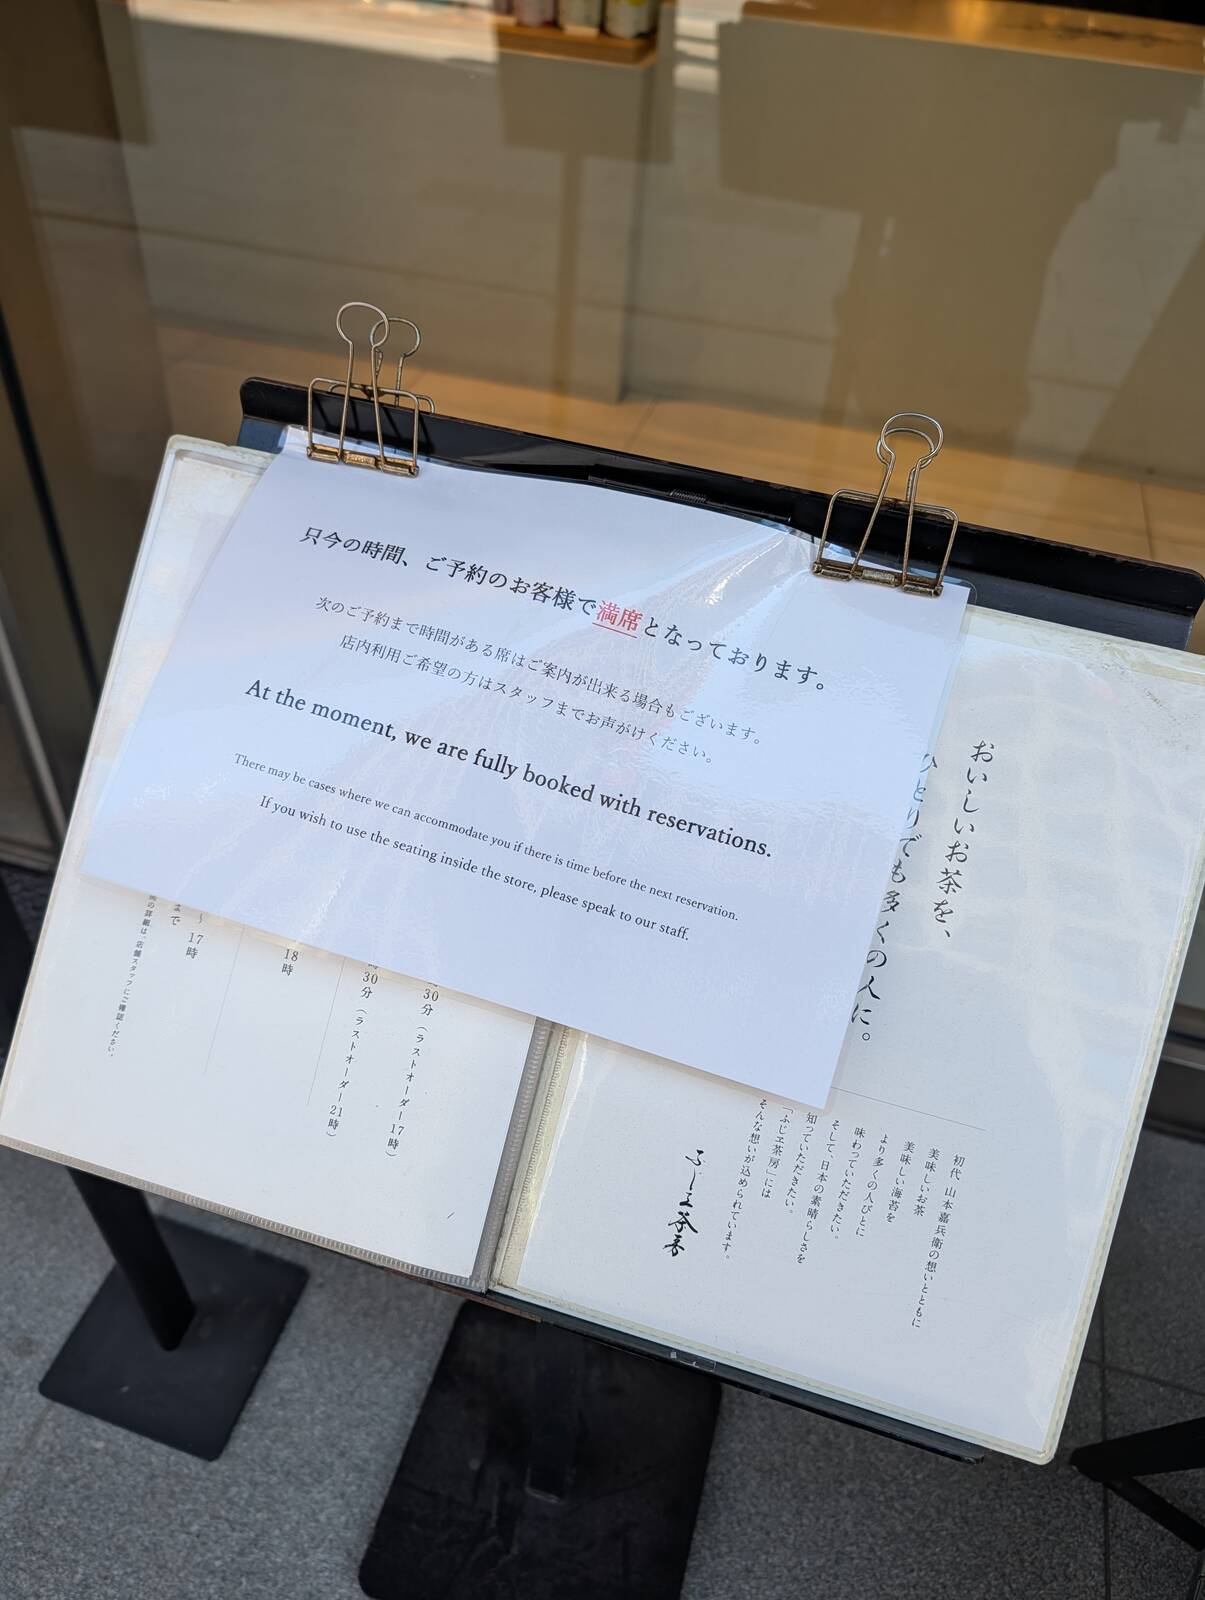 只今の時間、ご予約のお客様で満席となっております。
次のご予約まで時間がある席はご案内が出来る場合もございます。
店内利用ご希望の方はスタッフまでお声がけください。
At the moment, we are fully booked with reservations.
There may be cases where we can accommodate you if there is time before the next reservation.
If you wish to use the seating inside the store, please speak to our staff.
おいしいお茶を、
ひとりでも多くの人に。
初代 山本嘉兵衛の想いとともに
美味しいお茶
美味しい海苔を
より多くの人びとに
味わっていただきたい。
そして、日本の素晴らしさを
知っていただきたい。
「ふじヱ茶房」には
そんな想いが込められています。
ふじヱ茶房
30分（ラストオーダー17時）
時30分（ラストオーダー21時）
18時
〜17時
まで
の詳細は、店舗スタッフにご確認ください。